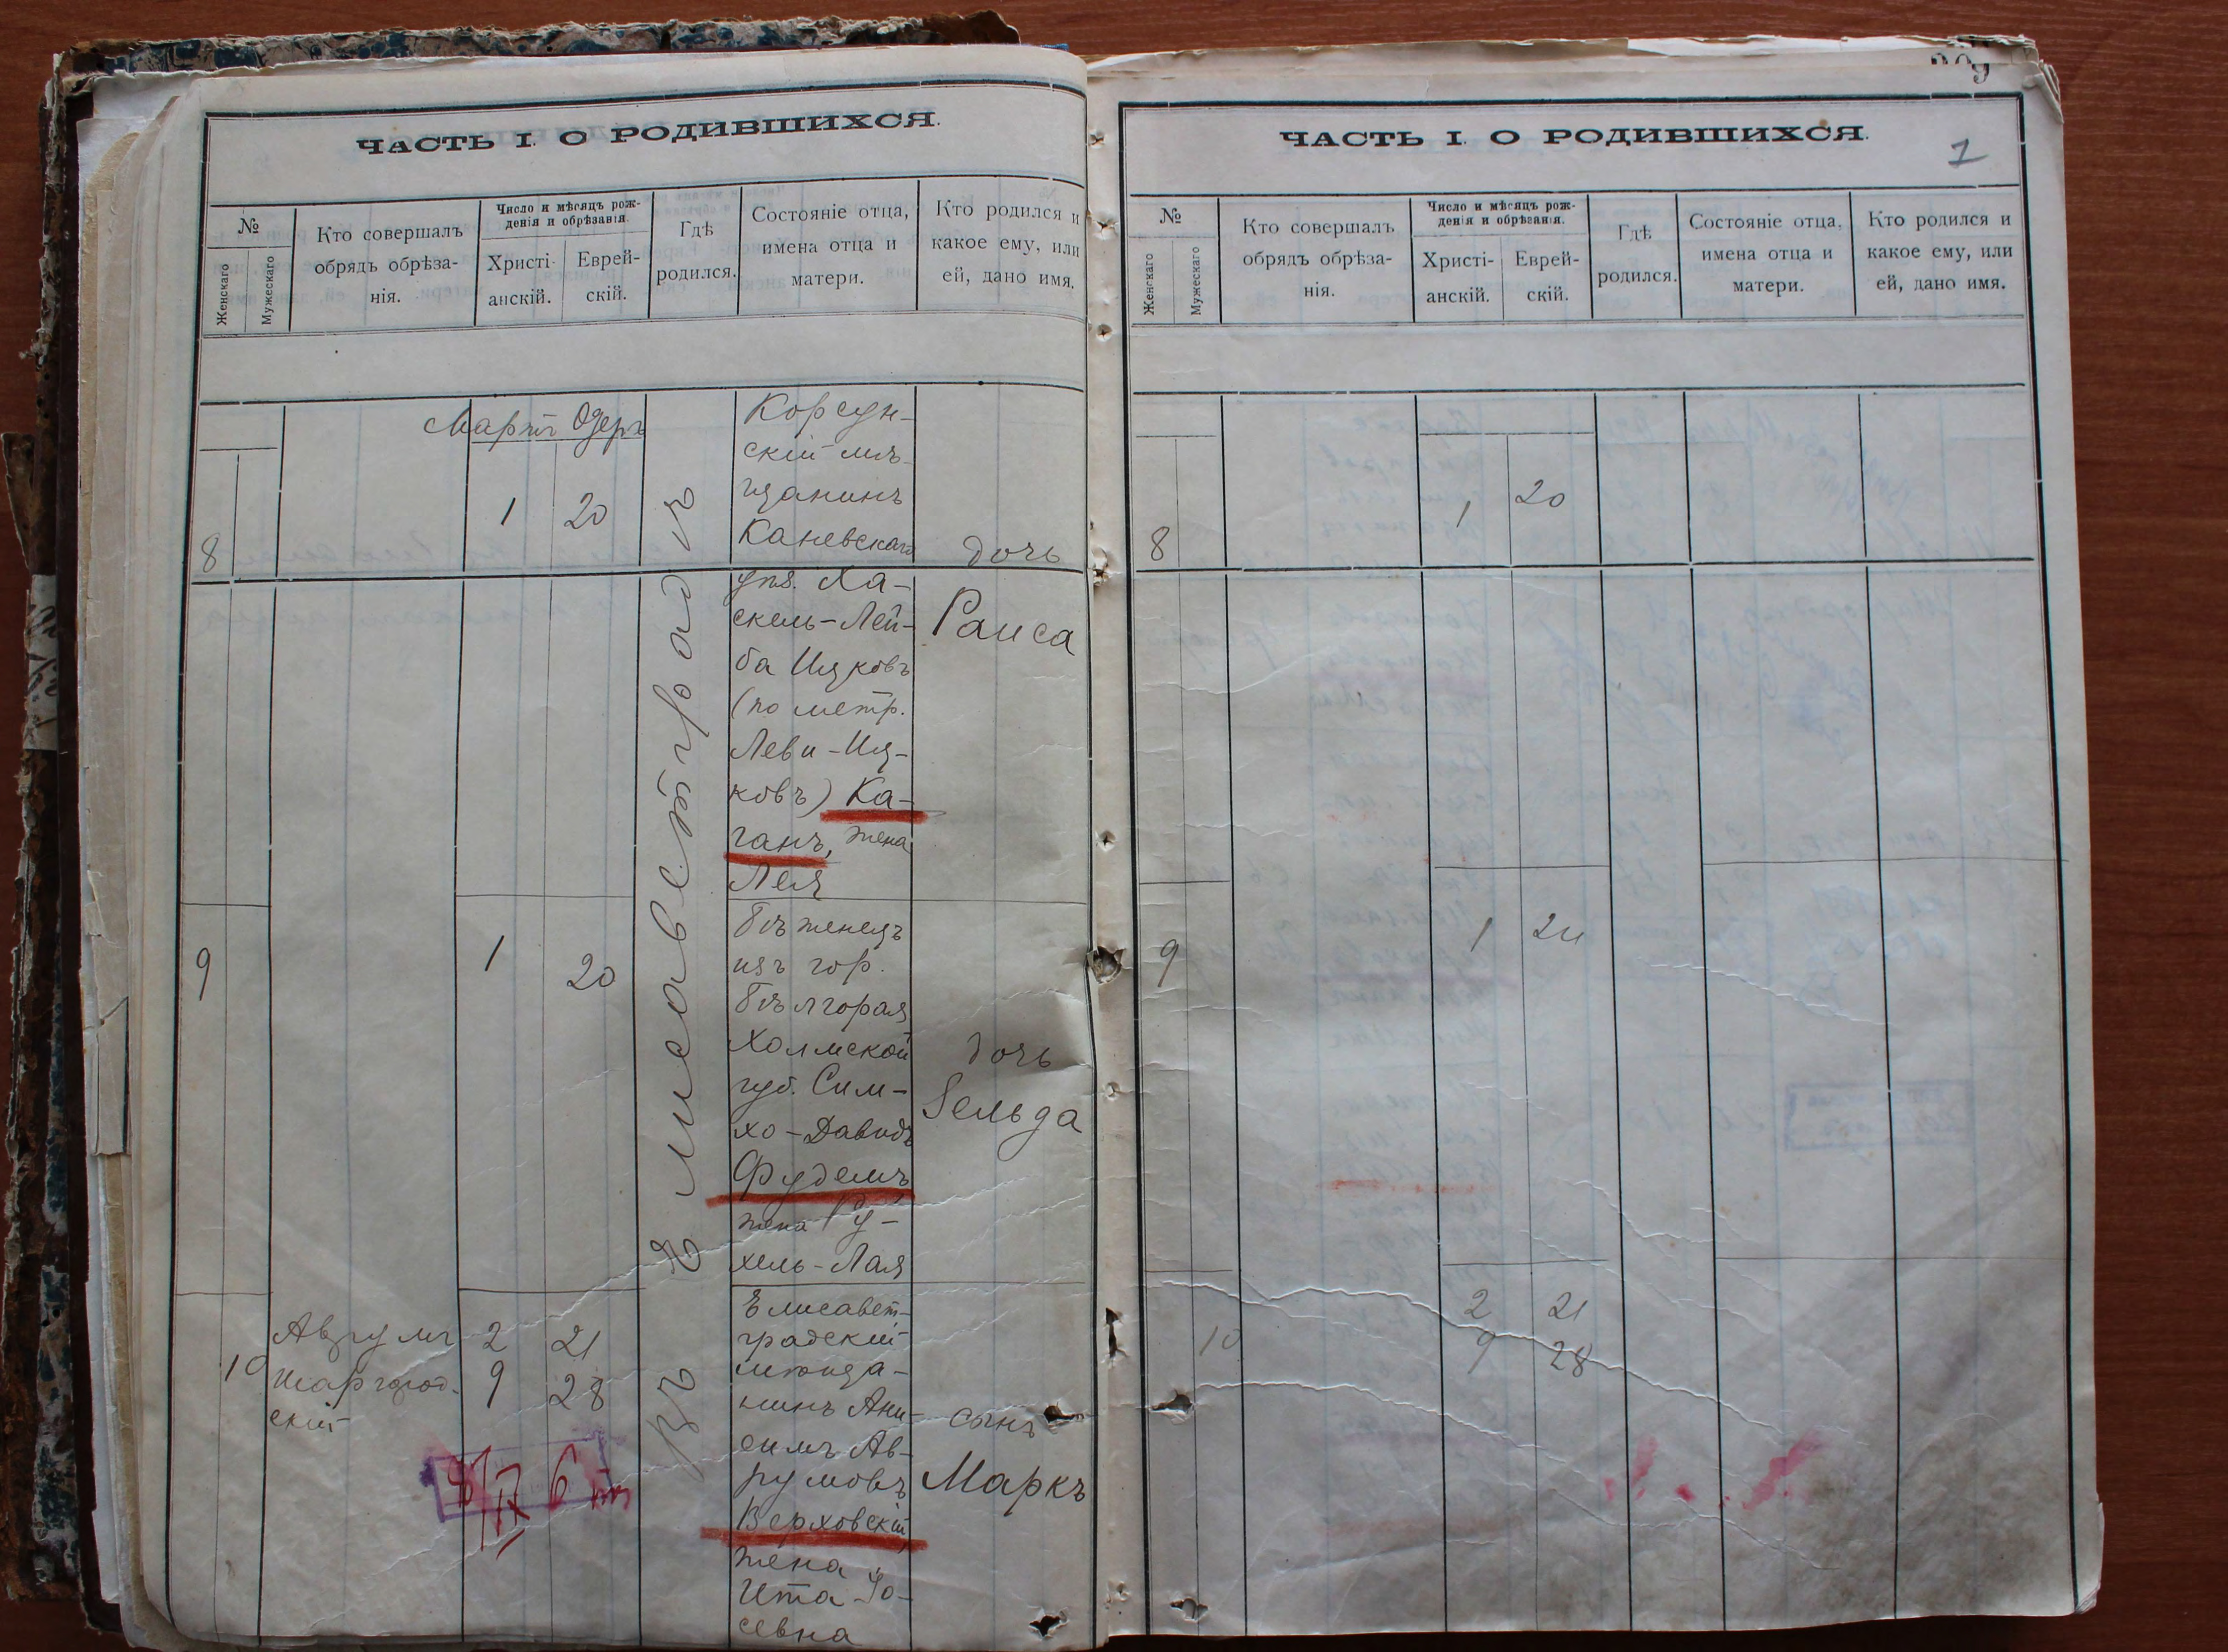 ЧАСТЬ I. О РОДИВШИХСЯ.
№
Женскаго
Мужескаго
Кто совершалъ
обрядъ обрѣза-
нія.
Число и мѣсяцъ рож-
денія и обрѣзанія.
Христі-
анскій.
Еврей-
скій.
Гдѣ
родился.
Состояніе отца,
имена отца и
матери.
Кто родился и
какое ему, или
ей, дано имя.
Мартъ Одеръ
8
1 20
Въ Елисаветградѣ
Корсун-
скій мѣ-
щанинъ
Каневскаго
уѣз. Ха-
скель-Лей-
ба Ицковъ
(по метр.
Леви-Иц-
ковъ) Ка-
ганъ, жена
Лея
дочь
Раиса
9
1 20
Бѣженецъ
изъ гор.
Бѣлгорая
Холмской
губ. Сим-
хо-Давидъ
Фудемъ,
жена Ру-
хель-Лая
дочь
Зельда
10
Аврумъ
Шаргород-
скій
2 21
9 28
Елисавет-
градскій
мѣща-
нинъ Ани-
симъ Ав-
румовъ
Верховскій,
жена
Ита-Іо-
севна
сынъ
Маркъ
ЧАСТЬ I. О РОДИВШИХСЯ.
1
№
Женскаго
Мужескаго
Кто совершалъ
обрядъ обрѣза-
нія.
Число и мѣсяцъ рож-
денія и обрѣзанія.
Христі-
анскій.
Еврей-
скій.
Гдѣ
родился.
Состояніе отца,
имена отца и
матери.
Кто родился и
какое ему, или
ей, дано имя.
8
1 20
9
1 20
10
2 21
9 28